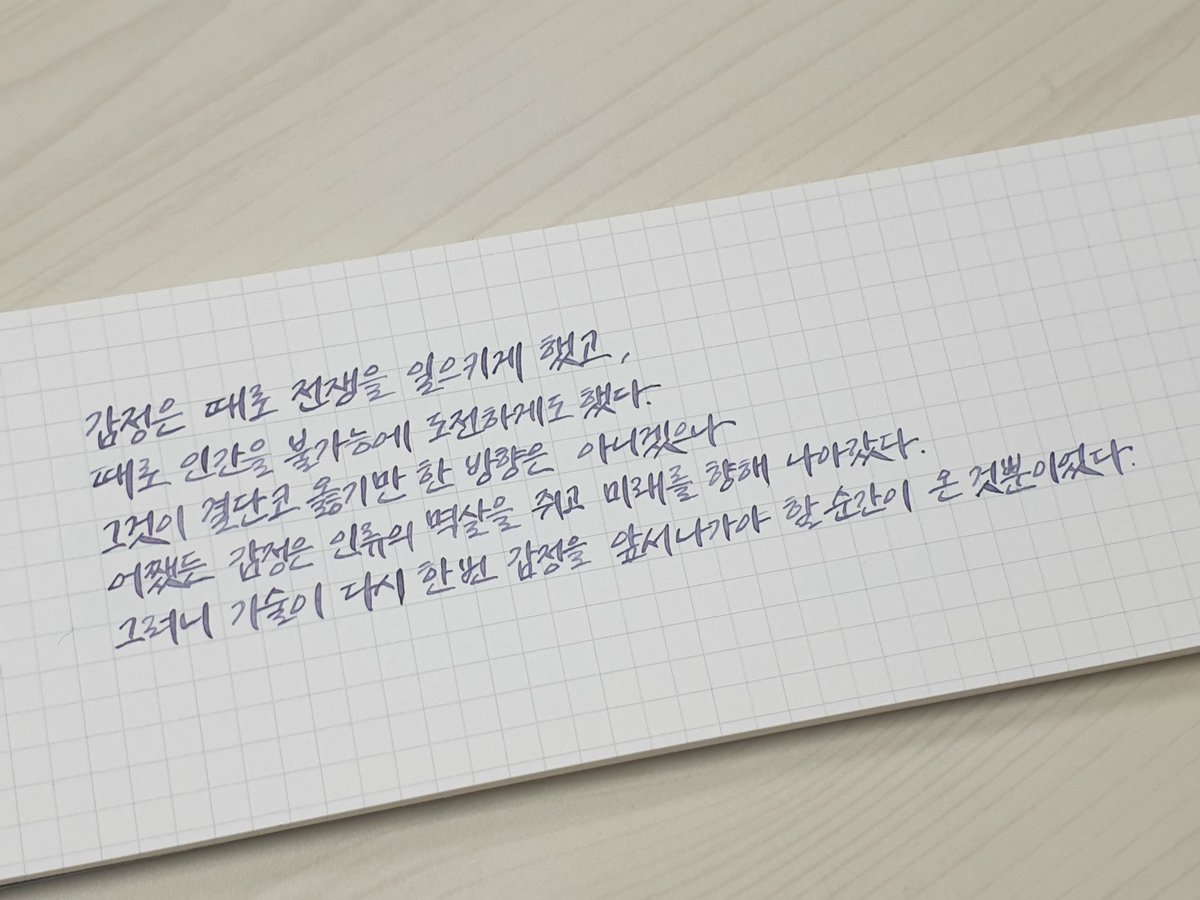 감정은 때로 전쟁을 일으키게 했고,
때로 인간을 불가능에 도전하게도 했다.
그것이 결단코 옳기만 한 방향은 아니겠으나
어쨌든 감정은 인류의 멱살을 쥐고 미래를 향해 나아갔다.
그러니 기술이 다시 한번 감정을 앞서나가야 할 순간이 온 것뿐이었다.